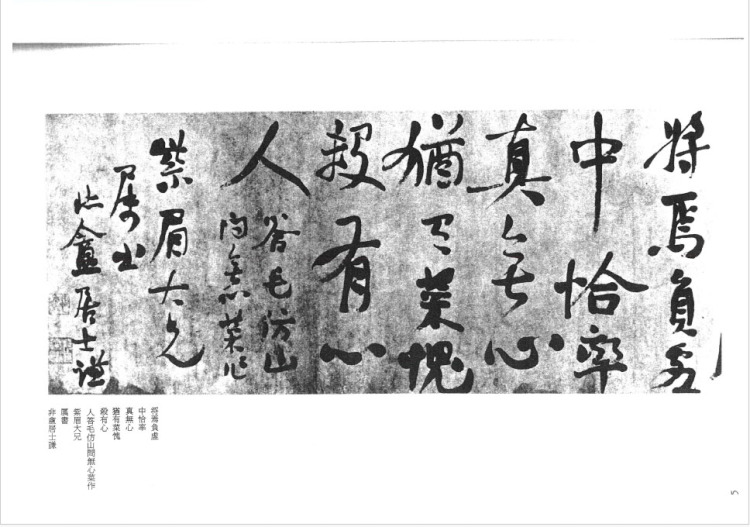 將焉負處
中恰率
真無心
猶有菜愧
殺有心
人
答毛仿山
問無心菜作
紫眉大兄
屬書
非盦居士謙
將焉負處
中恰率
真無心
猶有菜愧
殺有心
人答毛仿山問無心菜作
紫眉大兄
屬書
非盦居士謙
5